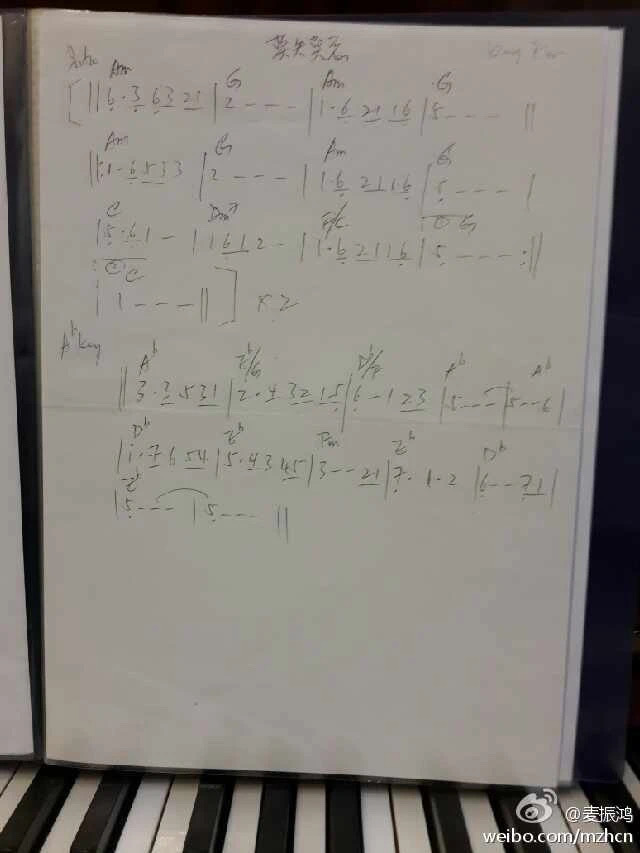 莫失莫忘
Intro
Am G Am G
[ ‖ 6·3 63 21 | 2 - - - | 1·6 21 16 | 5 - - - ‖
Am G Am G
‖: 1·6 5 3 3 | 2 - - - | 1·6 2 1 1 6 | 5 - - - |
C Dm7 F/C C G
| 5·6 1 - | 1 1 6 1 2 - | 1·6 2 1 1 6 | 5 - - - :‖
C C
| 1 - - - ‖ ] x 2
A♭ key
A♭ E♭/G D♭/F A♭ A♭
‖ 3·3 5 3 1 | 2·4 3 2 1 5 | 6 - 1 2 3 | 5 - - - | 5 - - 6 |
D♭ E♭ Fm E♭ D♭
| 1·7 6 5 4 | 5·4 3 4 5 | 3 - - 2 1 | 7· 1 - 2 | 6 - - 7 1 |
E♭
| 5 - - - | 5 - - - ‖
@麦振鸿
weibo.com/mzhcn